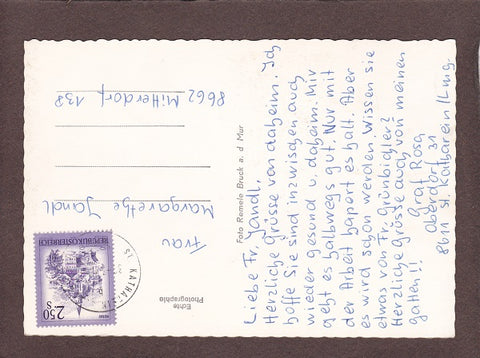 Liebe Fr. Jandl,
Herzliche Grüsse von daheim. Ich
hoffe Sie sind inzwischen auch
wieder gesund u. daheim. Mir
geht es halbwegs gut. Nur mit
der Arbeit hapert es halt. Aber
es wird schon werden. Wissen sie
etwas von Fr. Grünbichler?
Herzliche Grüsse auch von meinen
gatten!!
Graf Rosa
Oberdorf 31
8611 St. Katharein /Lmg.
Foto Remele Bruck a. d. Mur
Echte
Photographie
Frau
Margarethe Jandl
8662 Mitterdorf 138
REPUBLIK ÖSTERREICH
2.50
S
ST. KATHAREIN